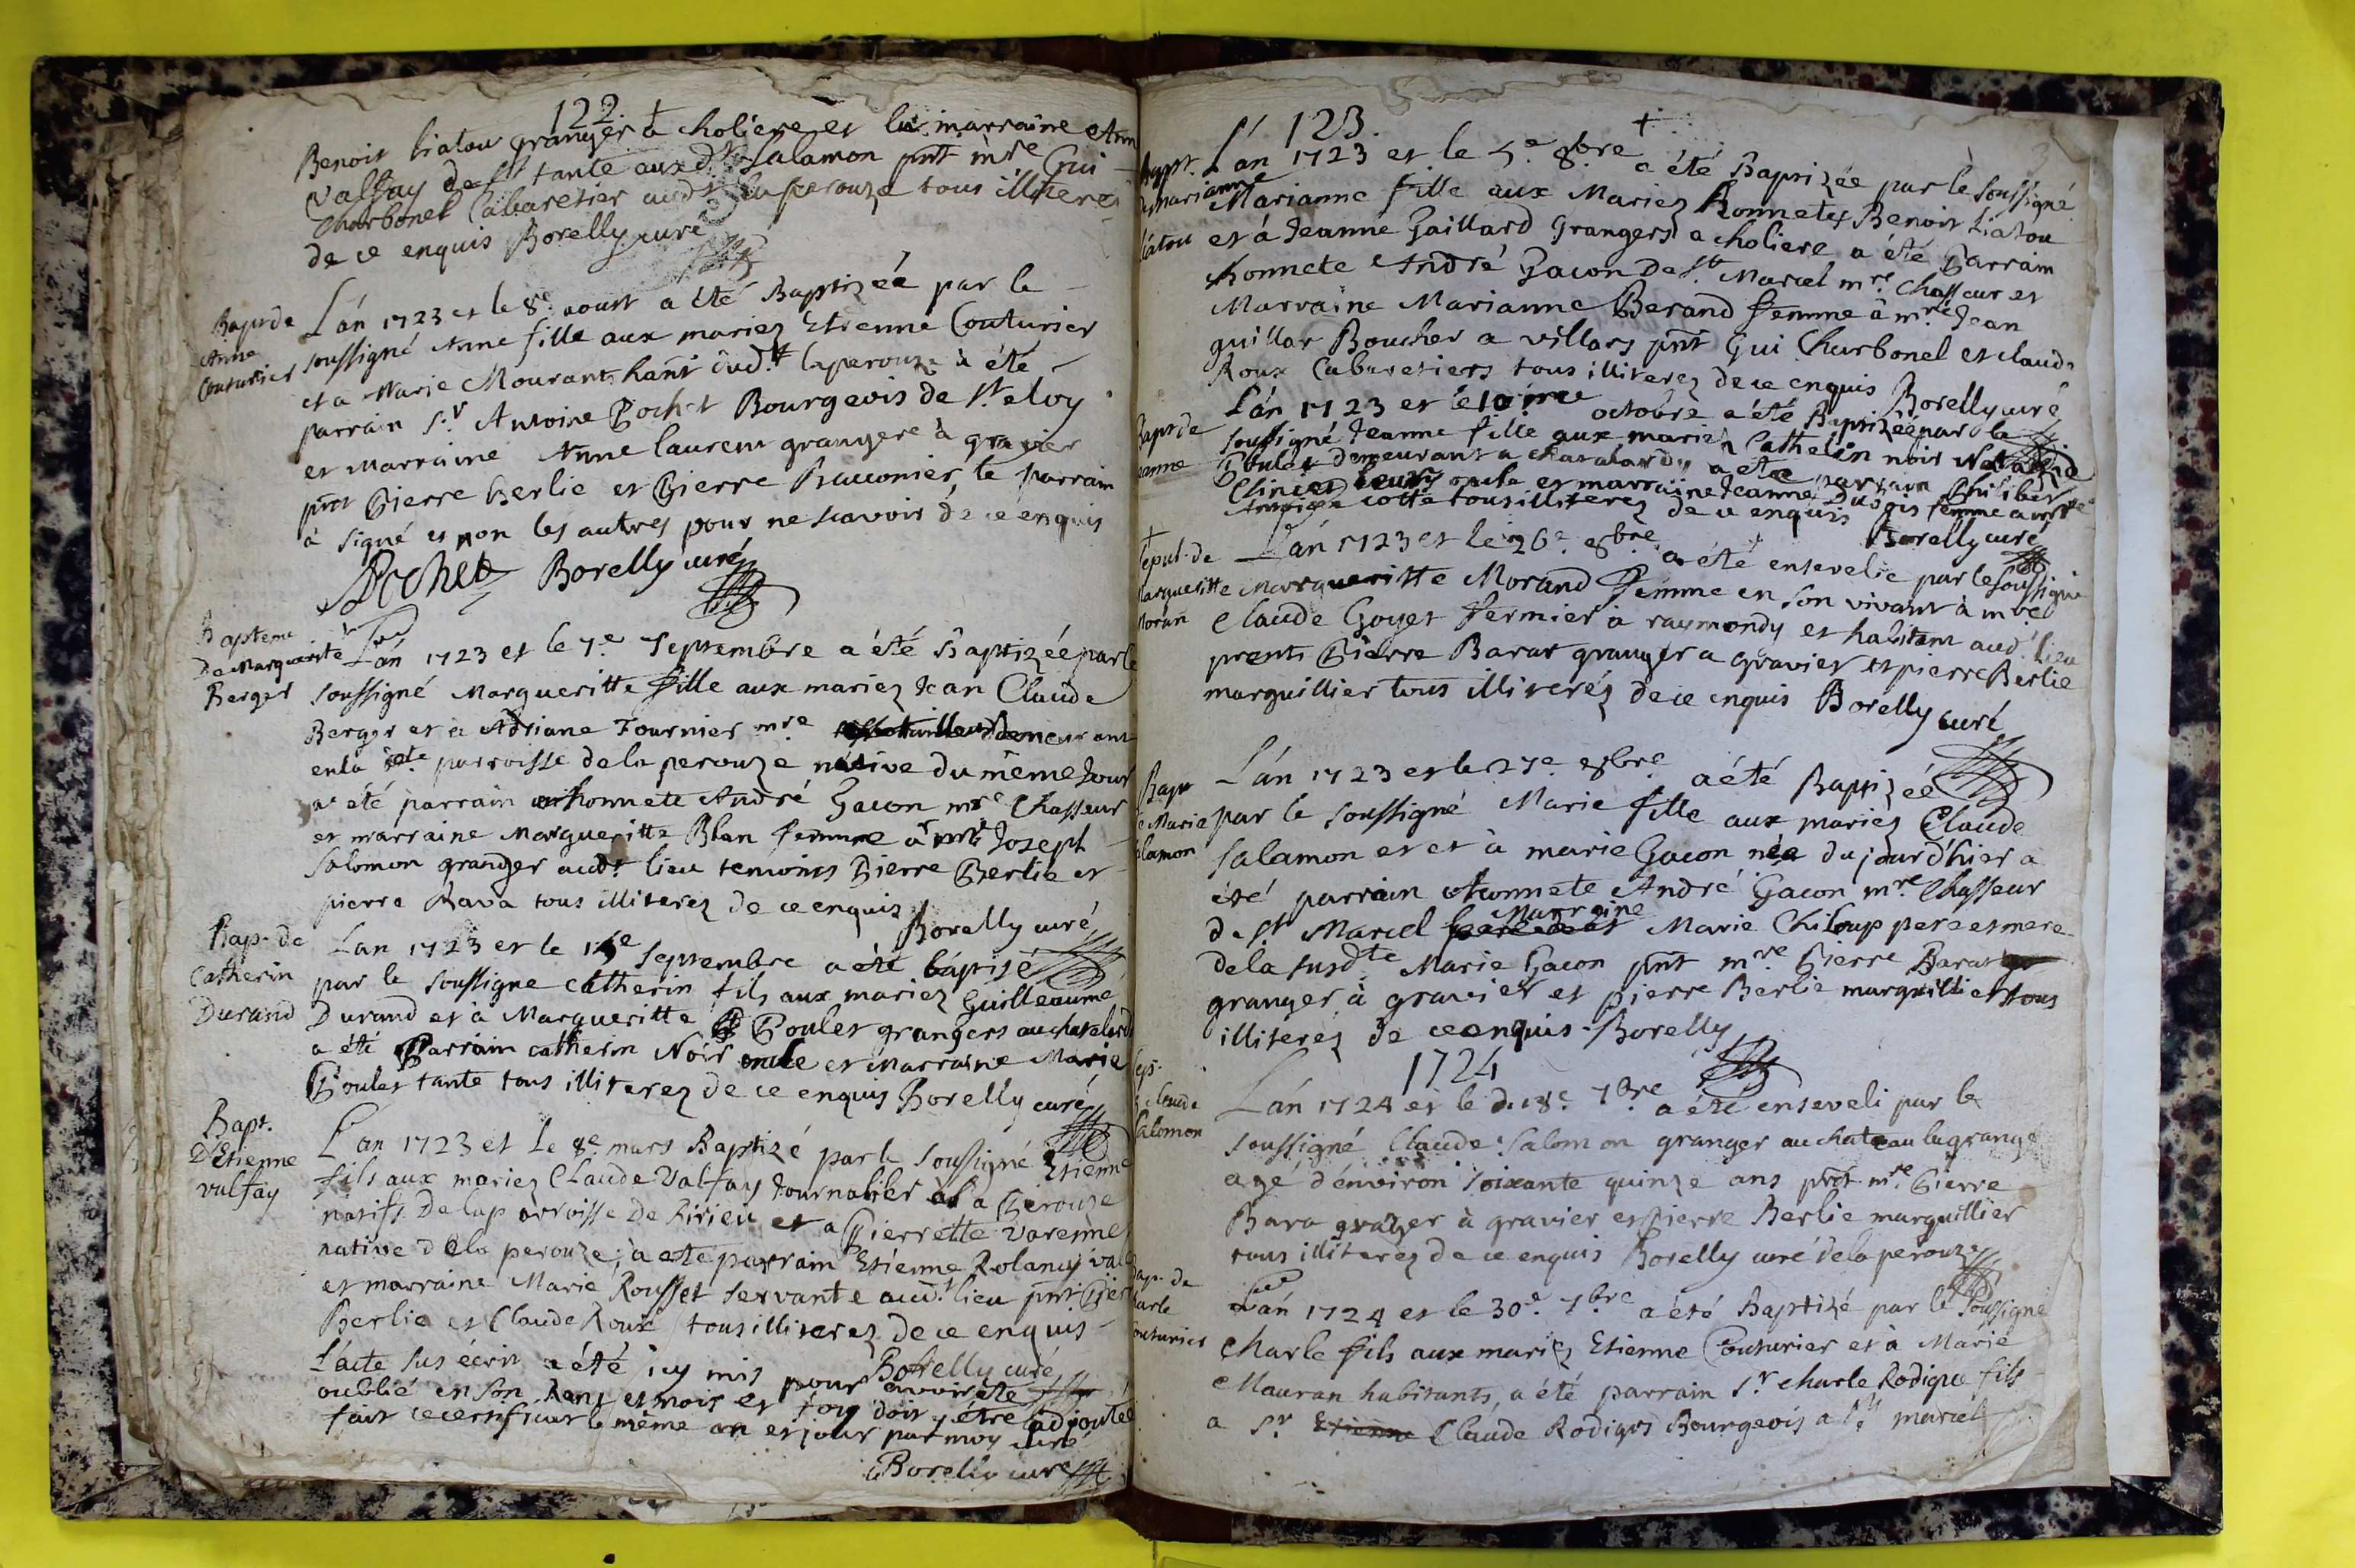 122.
Benoit liatou granger à choliere et la marraine Ann
valfay de st tante auxd. Salamon pnt mre Gui
Charbonel Cabaretier aud. laperouze tous illiterez
de ce enquis Borelly curé
Bapt de
Anne
Couturier
L'an 1723 et le 8e. aoust a été Baptizée par le
soussigné Anne fille aux mariez Etienne Couturier
et a Marie Mourant hant aud.t laperouze à été
parrain sr Antoine Pochet Bourgeois de st. eloy
et marraine Anne laurent grangere à gravier
pnt Pierre Berlie et Pierre le parrain
à signé et non les autres pour ne scavoir de ce enquis
Pochet Borelly curé
Bapteme
De Marguerite
Berger
L'an 1723 et le 7.e Septembre a été Baptizée par le
soussigné Margueritte fille aux mariez Jean Claude
Berger et a Adriane Fournier mre demeurant
en la parroisse de la perouze native du même Jour
a été parrain honnete André Gacon mre Chasseur
et marraine Margueritte Blan femme a mre Joseph
Salomon granger aud.t lieu temoins Pierre Berlie et
pierre Bara tous illiterez de ce enquis
Borelly curé
Bap. de
Catherin
Durand
L'an 1723 et le Septembre a été baptisé
par le soussigne catherin fils aux mariez Guilleaume
Durand et à Margueritte Poulet grangers au chatelard
a été Parrain catherin Noir oncle et Marraine Marie
Poulet tante tous illiterez de ce enquis Borelly curé
Bapt.
D'Etienne
valfay
L'an 1723 et le 8e. mars Baptizé par le soussigné Etienne
fils aux mariez Claude Valfay Journalier a la Perouze
natifs De la parroisse De Ririeu et a Pierrette Varenne
native de la perouze, a eté parrain Etienne Rolancy
et marraine Marie Rousset servante aud.t lieu pnt
Berlie et Claude Roux tous illiterez de ce enquis
Borelly curé
L'acte sus écrit a été icy mis pour avoir ete
oublié en son Rang et mois et foy doit y être adjoutée
fait ce certificat le même an et jour par moy curé
Borelly curé
123.
Bapt.
de Marianne
liatou
L'an 1723 et le 5e. 8bre a été Baptizée par le soussigné
Marianne fille aux Mariez Honnetes Benoit Liatou
et à Jeanne Gaillard Grangers a choliere a été Parrain
honnete André Gacon De st Marcel mre. Chasseur et
Marraine Marianne Berand femme à mre Jean
guillar Boucher a villars pnt Gui Charbonel et claude
Roux Cabaretiers tous illiterez de ce enquis Borelly curé
Bapt de
Jeanne
L'an 1723 et le octobre a été Baptizée par le
soussigné Jeanne fille aux mariez Cathelin noir
Poulet demeurant a chatalard a eté parrain Philiber
oncle et marraine Jeanne Dubois femme a mre
cotte tous illiterez de ce enquis Borelly curé
Sepul. de
Margueritte
Moran
L'an 1723 et le 26e. 8bre a été ensevelie par le soussigné
Margueritte Morand femme en son vivant à mre
Claude Goyet fermier à raymondy et habitant aud. lieu
prents Pierre Barat granger a gravier et pierre Berlie
marguillier tous illiterez de ce enquis Borelly curé
Bapt
de Marie
Salamon
L'an 1723 et le 27e 8bre a été Baptizée
par le soussigné Marie fille aux mariez Claude
Salamon et et à marie Gacon née du jourd'hier a
été parrain honnete André Gacon mre. Chasseur
de st Marcel Marraine Marie Chiloup pere et mere
de la susdte Marie Gacon pnt mre Pierre Barat
granger à gravier et pierre Berlie marguillier tous
illiterez de ce enquis. Borelly
1724
Sep.
Claude
Salomon
L'an 1724 et le 7bre a été enseveli par le
soussigné Claude Salomon granger au chateau lagrange
agé d'environ soixante quinze ans pnt mre. Pierre
Bara granger à gravier et Pierre Berlie marguillier
tous illiterez de ce enquis Borelly curé de la perouze
Bap. de
Charle
Couturier
L'an 1724 et le 30e. 7bre a été Baptizé par le Soussigné
Charle fils aux mariez Etienne Couturier et à Marie
Mauran habitants, a été parrain sr charle Rodigue fils
a sr Claude Rodigos Bourgeois a st marcel